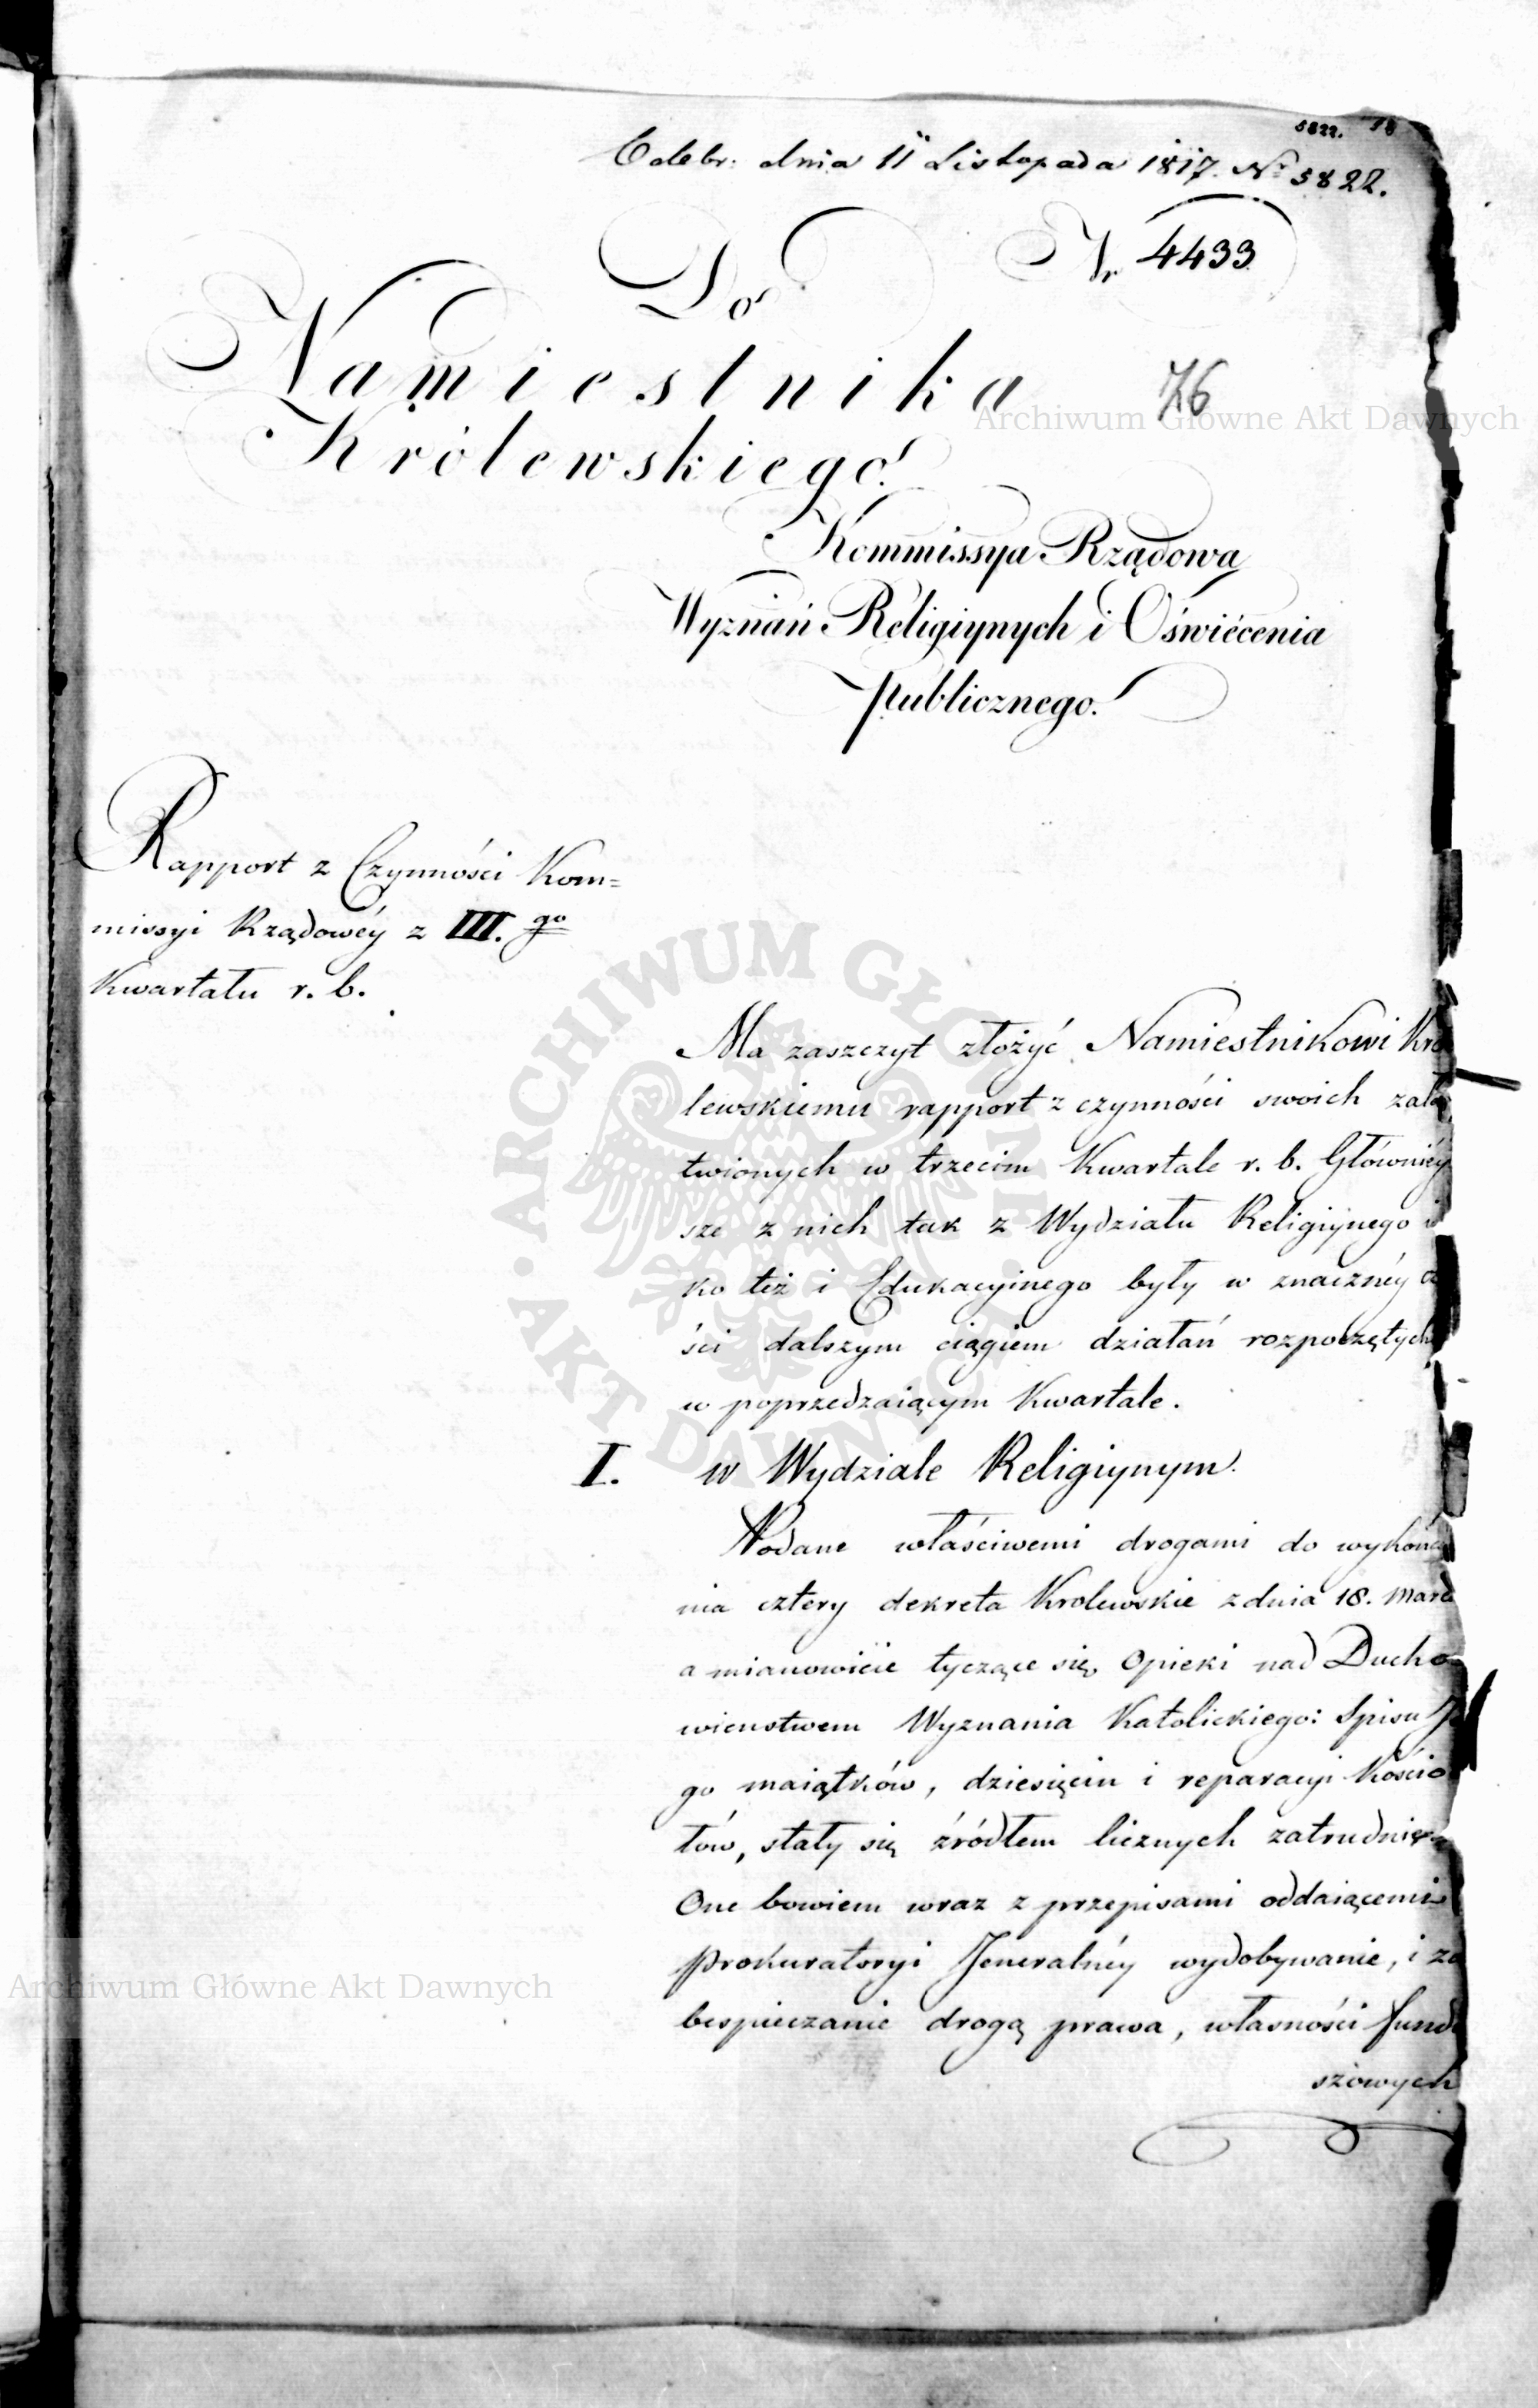 5822. 18
Odebr: dnia 11 Listopada 1817. Nr 5822.
Nr 4433
Do
Namiestnika
Królewskiego.
76
Archiwum Główne Akt Dawnych
Kommissya Rządowa
Wyznań Religiynych i Oświécenia
publicznego.
Rapport z Czynności Kom=
missyi Rządowéy z III.go
Kwartału r. b.
Ma zaszczyt złożyć Namiestnikowi Kró
lewskiemu rapport z czynności swoich zała
twionych w trzecim Kwartale r. b. Główniéy
sze z nich tak z Wydziału Religiynego i
ko też i Edukacyinego były w znacznéy c
ści dalszym ciągiem działań rozpoczętych
w poprzedzaiącym Kwartale.
I. w Wydziale Religiynym.
Podane właściwemi drogami do wykona
nia cztery dekreta Krolewskie z dnia 18. Marc
a mianowicie tyczące się Opieki nad Ducho=
wienstwem Wyznania Katolickiego: Spisu Je
go maiątków, dziesięcin i reparacyi Kościo
łów, stały się źródłem licznych zatrudnień
One bowiem wraz z przepisami oddaiącemi
Prokuratoryi Jeneralnéy wydobywanie, i za
bespieczanie drogą prawa, własności fundu
szowych
ARCHIWUM GŁÓWNE AKT DAWNYCH
Archiwum Główne Akt Dawnych